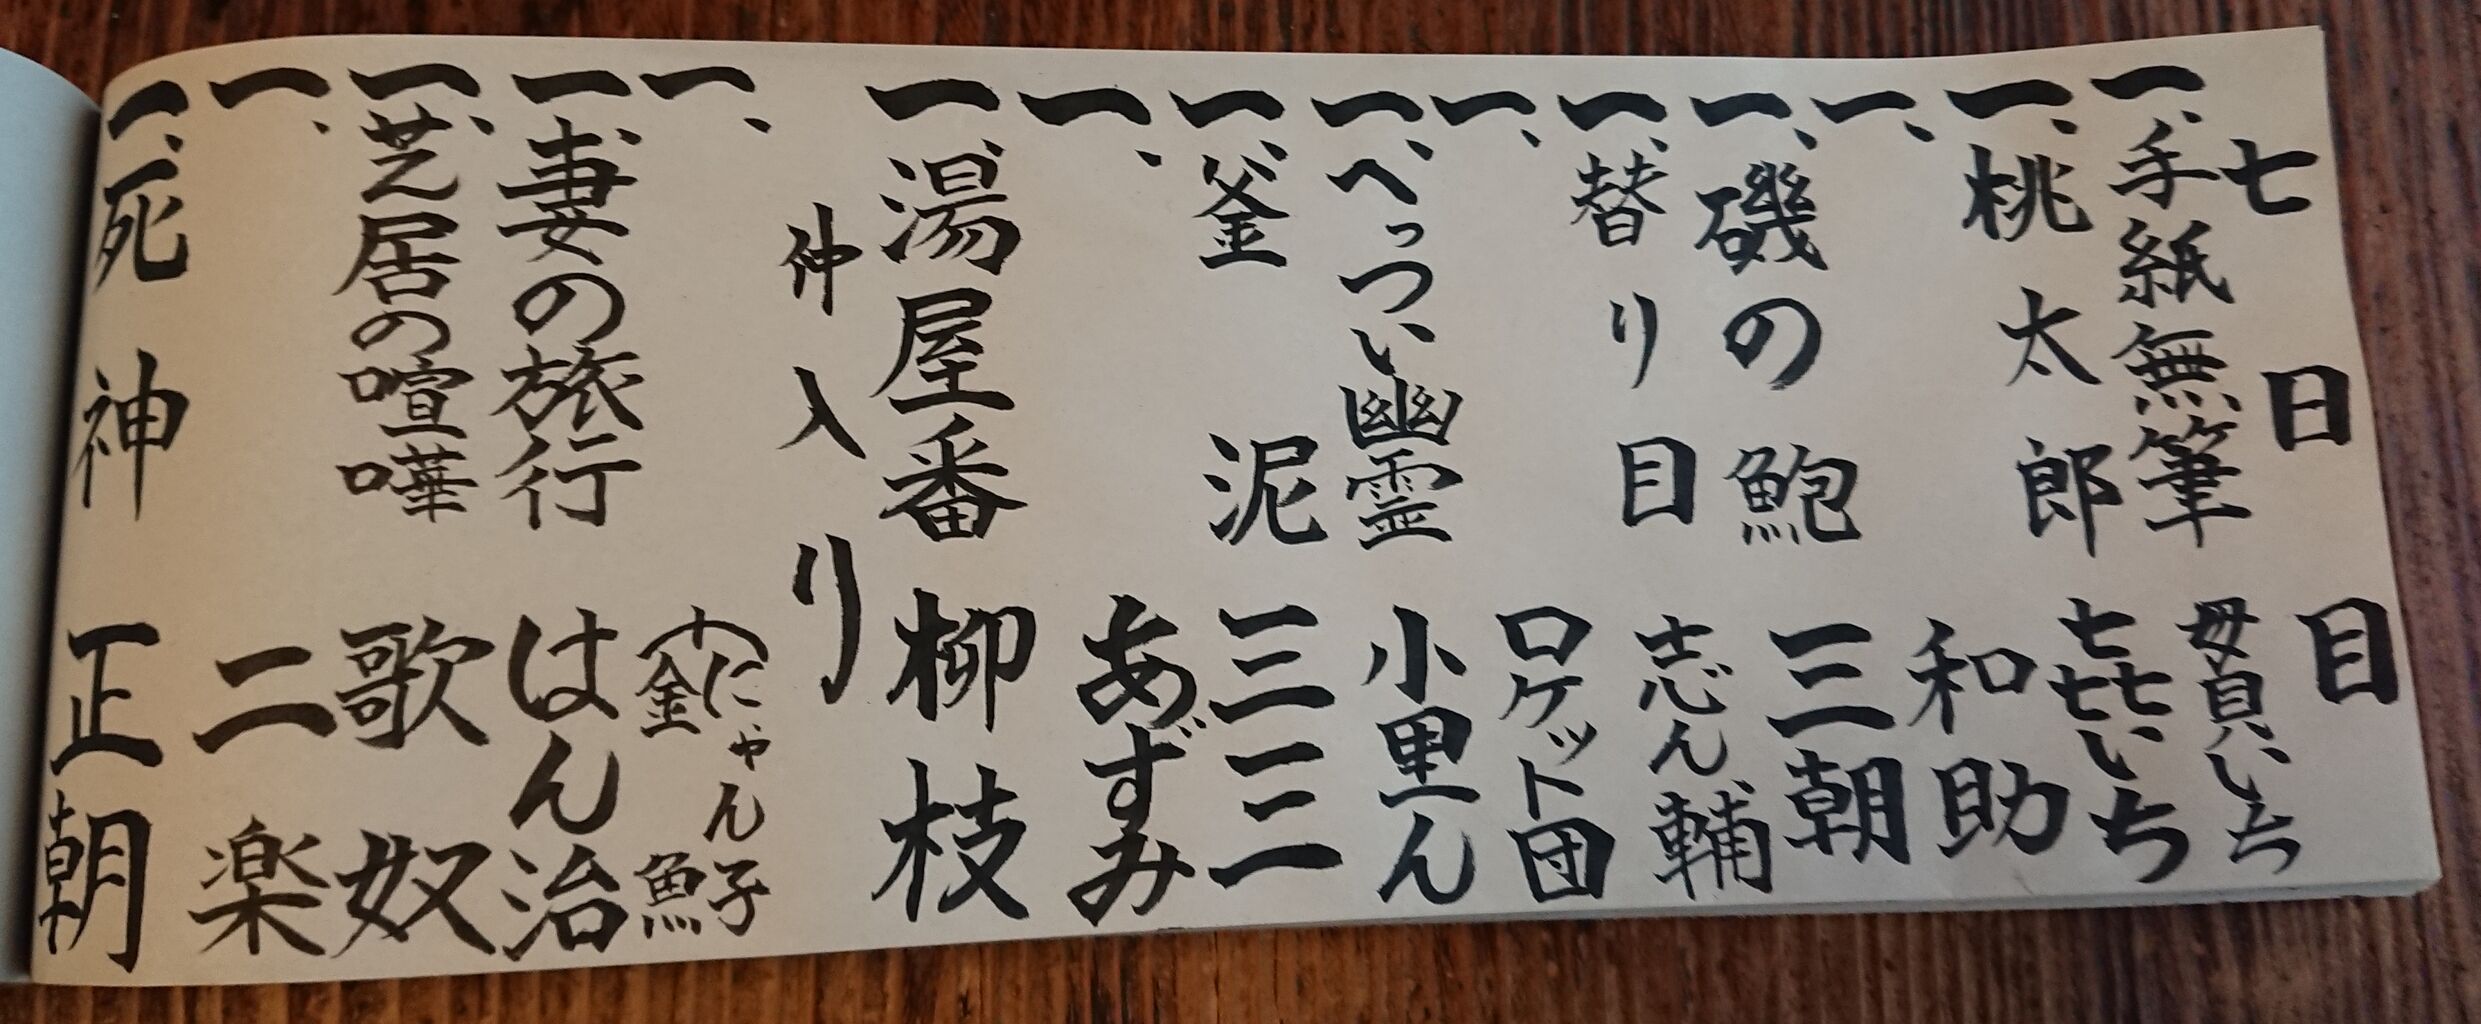 七日目
一、手紙無筆 貫いち
一、桃太郎 㐂いち
一、 和助
一、磯の鮑 三朝
一、替り目 志ん輔
一、 ロケット団
一、へっつい幽霊 小里ん
一、釜泥 三三
一、 あずみ
一、湯屋番 柳枝
仲入り
一、 にゃん子 金魚
一、妻の旅行 はん治
一、芝居の喧嘩 歌奴
一、 二楽
一、死神 正朝